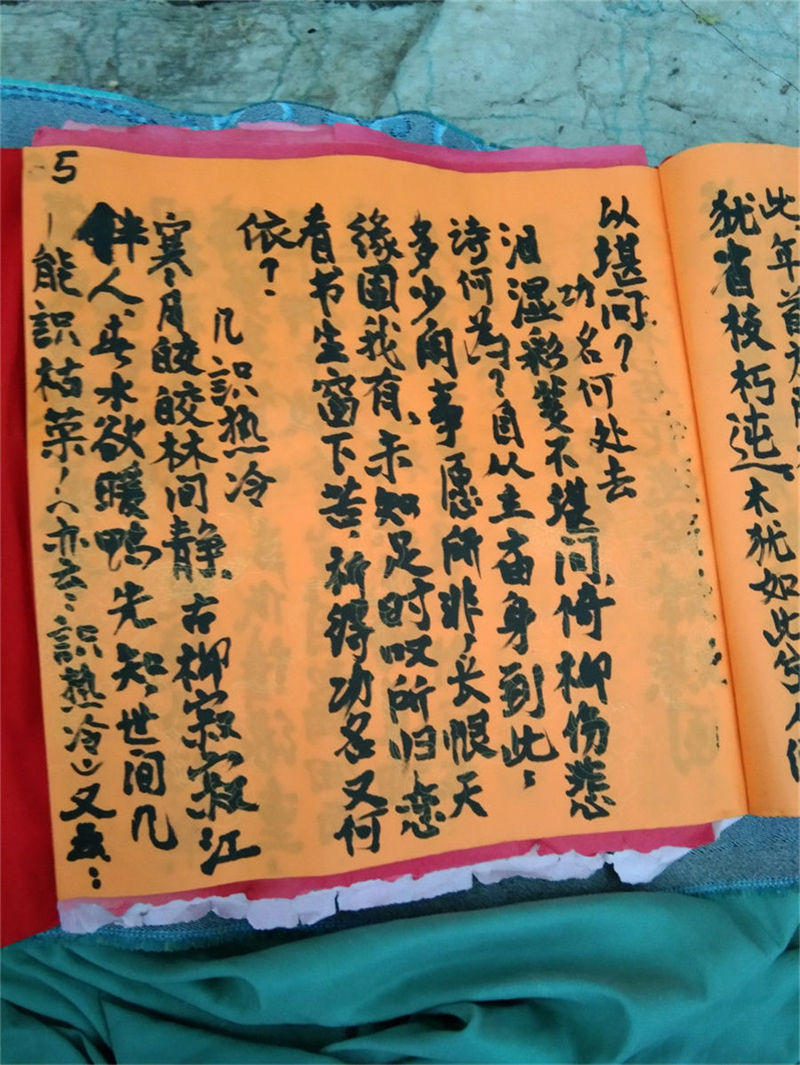 此年首
犹省枝朽迍木犹如此
5
以堪问?
功名何处去
泪湿彩笺不堪问,倚柳伤悲
诗何为?自从主庙身到此,
多少闲事愿所非,长恨天
缘围我有,未知足时叹所归恋
看书生窗下苦,祈得功名又何
依?
几识热冷
寒月皎皎林间静,古柳寂寂江
伴人,春水欲暖鸭先知,世间几
能识枯荣!(亦云:识热冷)又云: